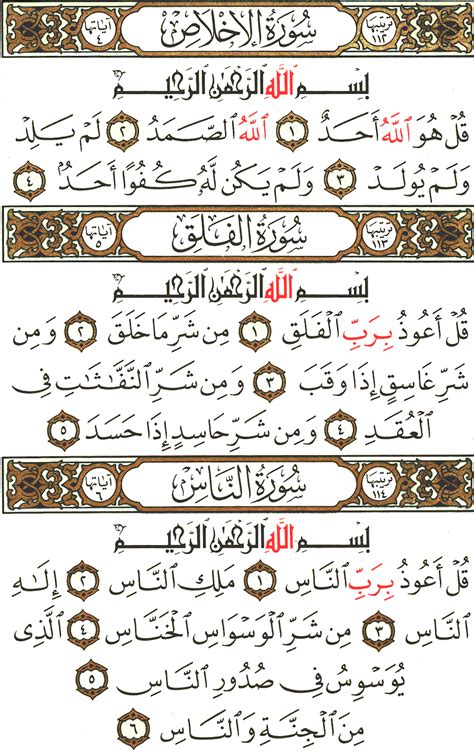 ترتيبها ١١٢ سُورَةُ الإِخْلَاصِ آياتها ٤
بِسْمِ ٱللَّهِ ٱلرَّحْمَٰنِ ٱلرَّحِيمِ
قُلْ هُوَ ٱللَّهُ أَحَدٌ ١ ٱللَّهُ ٱلصَّمَدُ ٢ لَمْ يَلِدْ
وَلَمْ يُولَدْ ٣ وَلَمْ يَكُن لَّهُۥ كُفُوًا أَحَدٌۢ ٤
ترتيبها ١١٣ سُورَةُ الفَلَقِ آياتها ٥
بِسْمِ ٱللَّهِ ٱلرَّحْمَٰنِ ٱلرَّحِيمِ
قُلْ أَعُوذُ بِرَبِّ ٱلْفَلَقِ ١ مِن شَرِّ مَا خَلَقَ ٢ وَمِن
شَرِّ غَاسِقٍ إِذَا وَقَبَ ٣ وَمِن شَرِّ ٱلنَّفَّٰثَٰتِ فِى
ٱلْعُقَدِ ٤ وَمِن شَرِّ حَاسِدٍ إِذَا حَسَدَ ٥
ترتيبها ١١٤ سُورَةُ النَّاسِ آياتها ٦
بِسْمِ ٱللَّهِ ٱلرَّحْمَٰنِ ٱلرَّحِيمِ
قُلْ أَعُوذُ بِرَبِّ ٱلنَّاسِ ١ مَلِكِ ٱلنَّاسِ ٢ إِلَٰهِ
ٱلنَّاسِ ٣ مِن شَرِّ ٱلْوَسْوَاسِ ٱلْخَنَّاسِ ٤ ٱلَّذِى
يُوَسْوِسُ فِى صُدُورِ ٱلنَّاسِ ٥
مِنَ ٱلْجِنَّةِ وَٱلنَّاسِ ٦